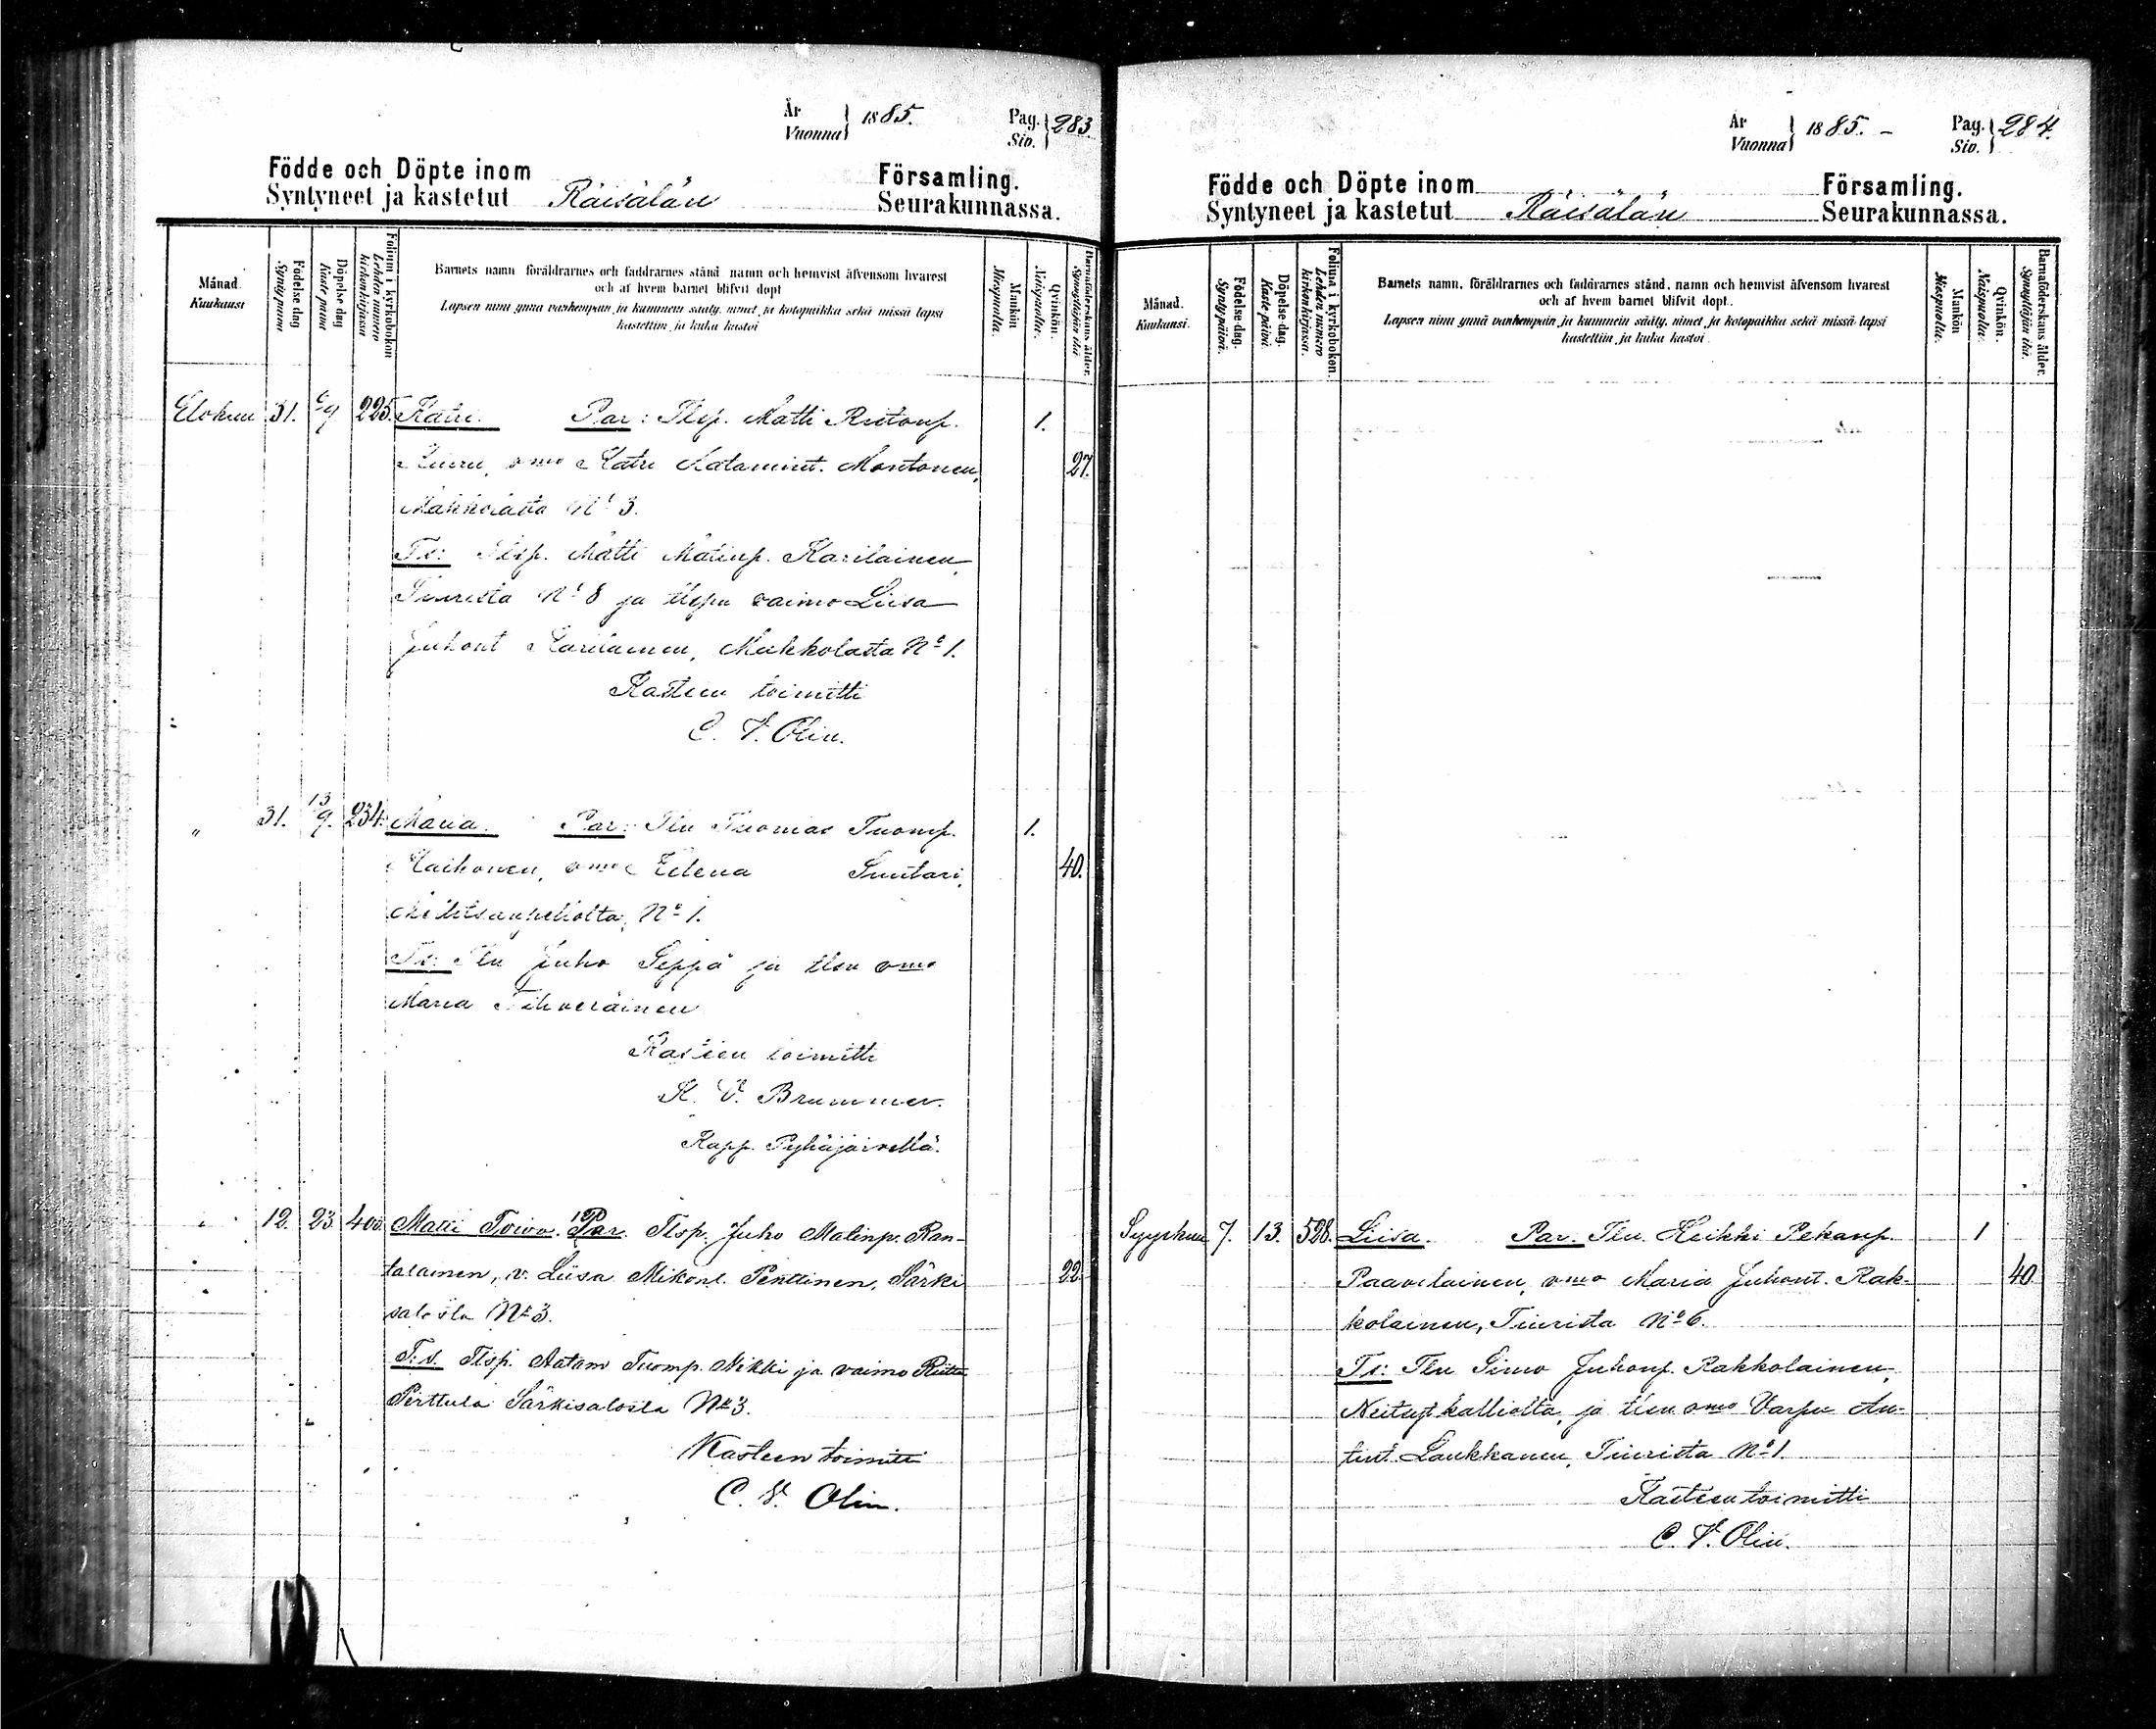 År
Vuonna } 1885.
Pag.
Siv. } 283.
Födde och Döpte inom Församling.
Syntyneet ja kastetut Räisälän Seurakunnassa.
Månad.
Kuukausi
Födelse dag
Synty päivä
Döpelse dag
Kaste päivä
Folium i kyrkoboken
Lehden numero
kirkonkirjassa
Barnets namn föräldrarnes och faddrarnes stånd namn och hemvist äfvensom hvarest
och af hvem barnet blifvit döpt
Lapsen nimi ynnä vanhempain ja kummein sääty, nimet ja kotopaikka sekä missä lapsi
kastettiin ja kuka kastoi
Mankön
Miespuolta.
Qvinkön.
Naispuolta.
Barnaföderskans ålder.
Synnyttäjän ikä.
Elokuu 31. 6/9 225. Katri. Par: Tlsp. Matti Ristonp. 1.
Kiuru, vmo Katri Katamint. Montonen, 27.
No 3.
Ts: Tlsp. Matti Matinp. Karilainen,
Tiurista No 8 ja tlspn vaimo Liisa
Juhont Karilainen, Makkolasta No 1.
Kasteen toimitti
C. F. Olin.
" 31. 13/9. 234. Maria. Par: Tln Tuomas Tuomp. 1.
Kaihonen, vmo Helena Suutari, 40.
No 1.
Ts: Tln Juho Seppä ja tlsn vmo
Maria Tihveräinen
Kasteen toimitti
K. V. Brummer.
Kapp. Pyhäjärvellä.
" 12. 23. 400. Matti Toivo. Par. Tlsp. Juho Matinp. Ran-
talainen, v. Liisa Mikont. Penttinen, Särki 22.
salosta No 3.
T:s. Tlsp. Aatam Tuomp. Mikki ja vaimo Riitta
Perttula Särkisalosta No 3.
Kasteen toimitti
C. F. Olin.
År
Vuonna } 1885. -
Pag.
Siv. } 284.
Födde och Döpte inom Församling.
Syntyneet ja kastetut Räisälän Seurakunnassa.
Månad.
Kuukausi.
Födelse dag.
Synty päivä.
Döpelse dag.
Kaste päivä.
Folium i kyrkoboken.
Lehden numero
kirkonkirjassa.
Barnets namn, föräldrarnes och faddrarnes stånd, namn och hemvist äfvensom hvarest
och af hvem barnet blifvit döpt.
Lapsen nimi ynnä vanhempain ja kummein sääty, nimet ja kotopaikka sekä missä lapsi
kastettiin ja kuka kastoi.
Mankön
Miespuolta.
Qvinkön.
Naispuolta.
Barnaföderskans ålder.
Synnyttäjän ikä.
Syyskuu 7. 13. 528. Liisa. Par. Tln. Heikki Pekanp. 1
Paavilainen, vmo Maria Juhont. Rak- 40
kolainen, Tiurista No 6.
Ts: Tln Simo Juhonp. Rakkolainen,
Neitsytkalliolta, ja tlsn vmo Varpu An-
tint. Laukkanen, Tiurista No 1.
Kasteen toimitti
C. F. Olin.